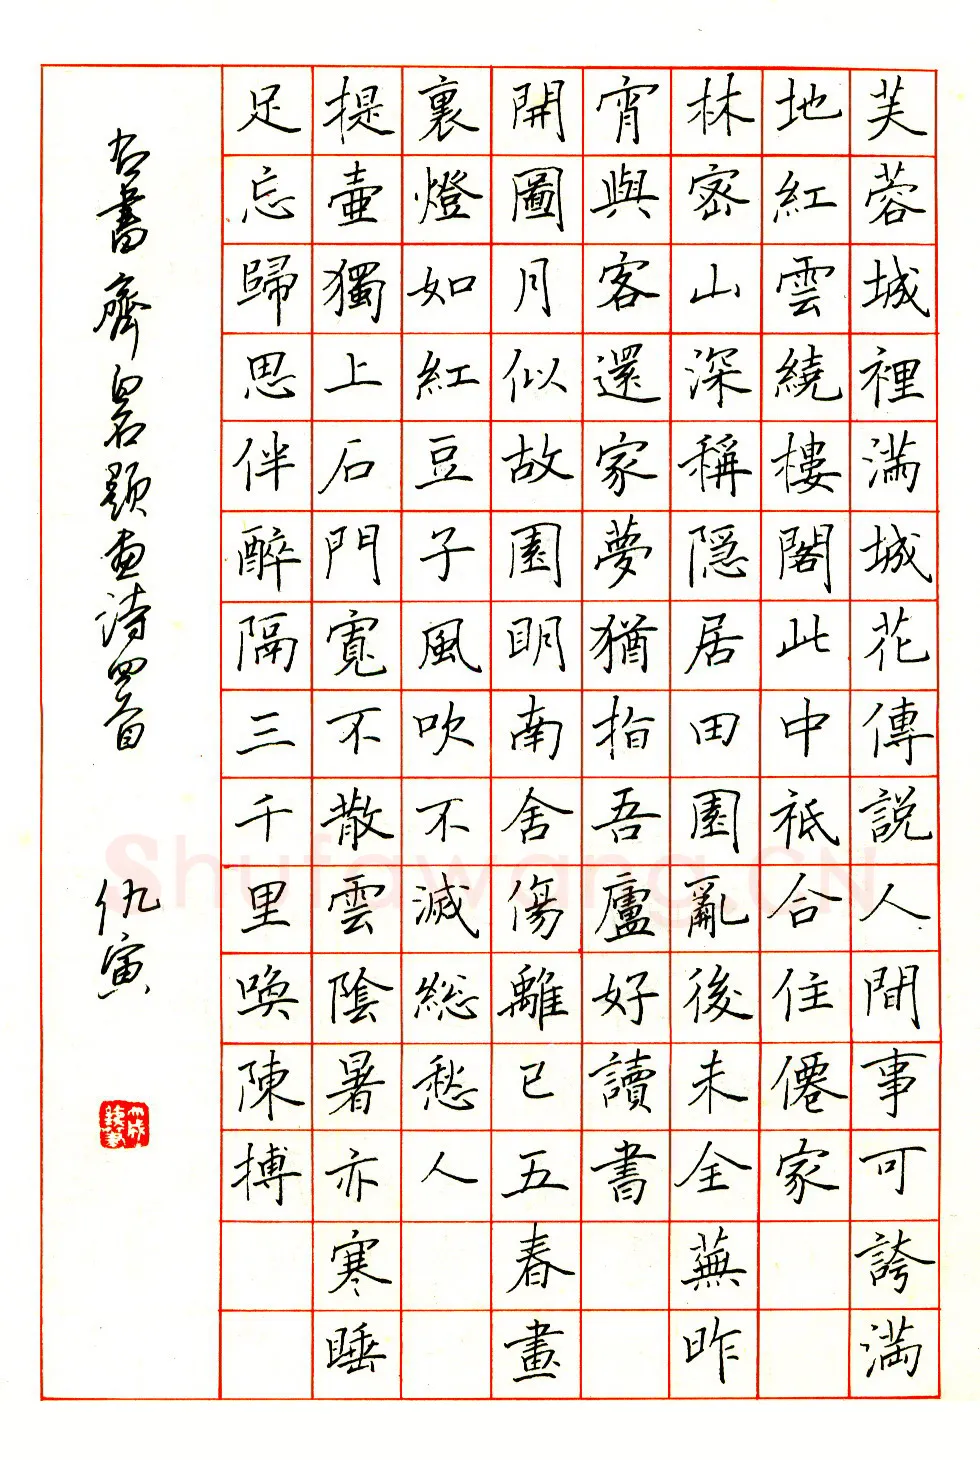 芙蓉城裡満城花傳説人間事可誇満
地紅雲繞樓閣此中祇合住僊家
林密山深稱隱居田園亂後未全蕪昨
宵與客還家夢猶指吾廬好讀書
開圖月似故園明南舍傷離已五春畫
裏燈如紅豆子風吹不滅總愁人
提壷獨上石門寬不散雲陰暑亦寒睡
足忘歸思伴醉隔三千里喚陳摶
右書齊白石題畫詩四首
仇寅
Shufawang.CN